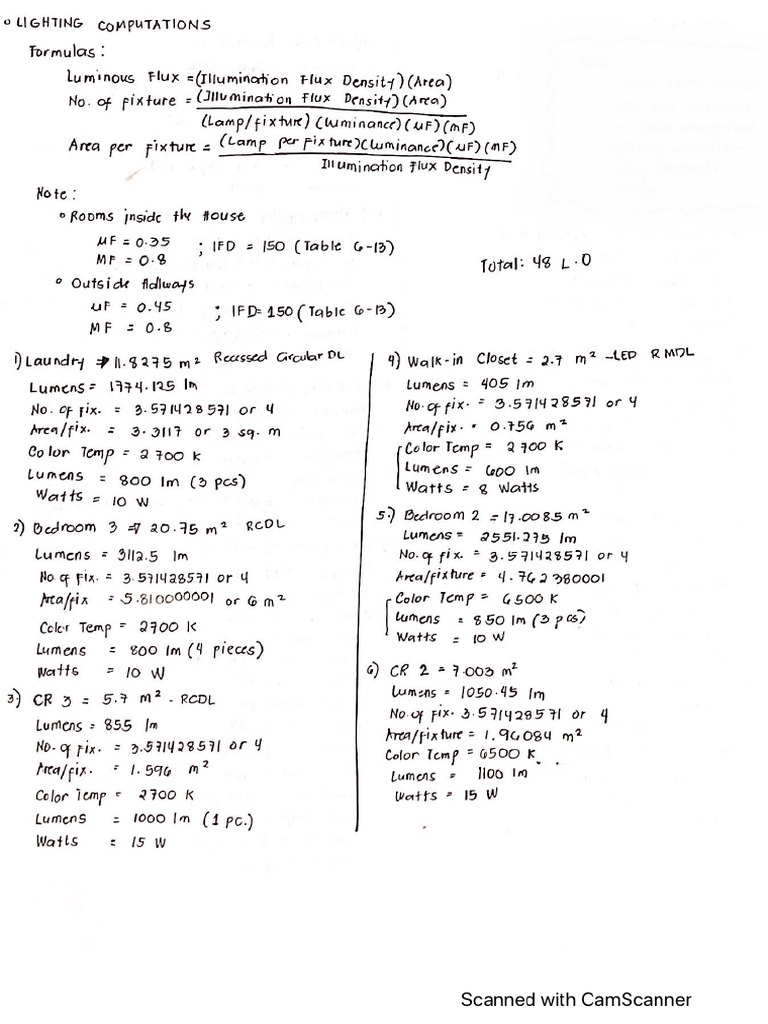 o LIGHTING COMPUTATIONS
Formulas:
Luminous Flux = (Illumination Flux Density)(Area)
No. of fixture = (Illumination Flux Density)(Area)
(Lamp/fixture)(Luminance)(μF)(MF)
Area per fixture = (Lamp per fixture)(Luminance)(μF)(MF)
Illumination Flux Density
Note:
o Rooms inside the House
μF = 0.35 ; IFD = 150 (Table 6-13)
MF = 0.8
Total: 48 L.O
o Outside Hallways
μF = 0.45 ; IFD = 150 (Table 6-13)
MF = 0.8
1) Laundry → 11.8275 m² Recessed Circular DL
Lumens = 1774.125 lm
No. of fix. = 3.571428571 or 4
Area/fix. = 3.3117 or 3 sq. m
Color Temp = 2700 K
Lumens = 800 lm (3 pcs)
Watts = 10 W
2) Bedroom 3 → 20.75 m² RCDL
Lumens = 3112.5 lm
No. of Fix. = 3.571428571 or 4
Area/fix = 5.810000001 or 6 m²
Color Temp = 2700 K
Lumens = 800 lm (4 pieces)
Watts = 10 W
3) CR 3 = 5.7 m² - RCDL
Lumens = 855 lm
No. of fix. = 3.571428571 or 4
Area/fix. = 1.596 m²
Color Temp = 2700 K
Lumens = 1000 lm (1 pc.)
Watts = 15 W
4) Walk-in Closet = 2.7 m² - LED RMDL
Lumens = 405 lm
No. of fix. = 3.571428571 or 4
Area/fix. = 0.756 m²
Color Temp = 2700 K
Lumens = 600 lm
Watts = 8 Watts
5.) Bedroom 2 = 17.0085 m²
Lumens = 2551.275 lm
No. of fix. = 3.571428571 or 4
Area/fixture = 4.762380001
Color Temp = 6500 K
Lumens = 850 lm (3 pcs)
Watts = 10 W
6) CR 2 = 7.003 m²
Lumens = 1050.45 lm
No. of fix. 3.571428571 or 4
Area/fixture = 1.96084 m²
Color Temp = 6500 K
Lumens = 1100 lm
Watts = 15 W
Scanned with CamScanner